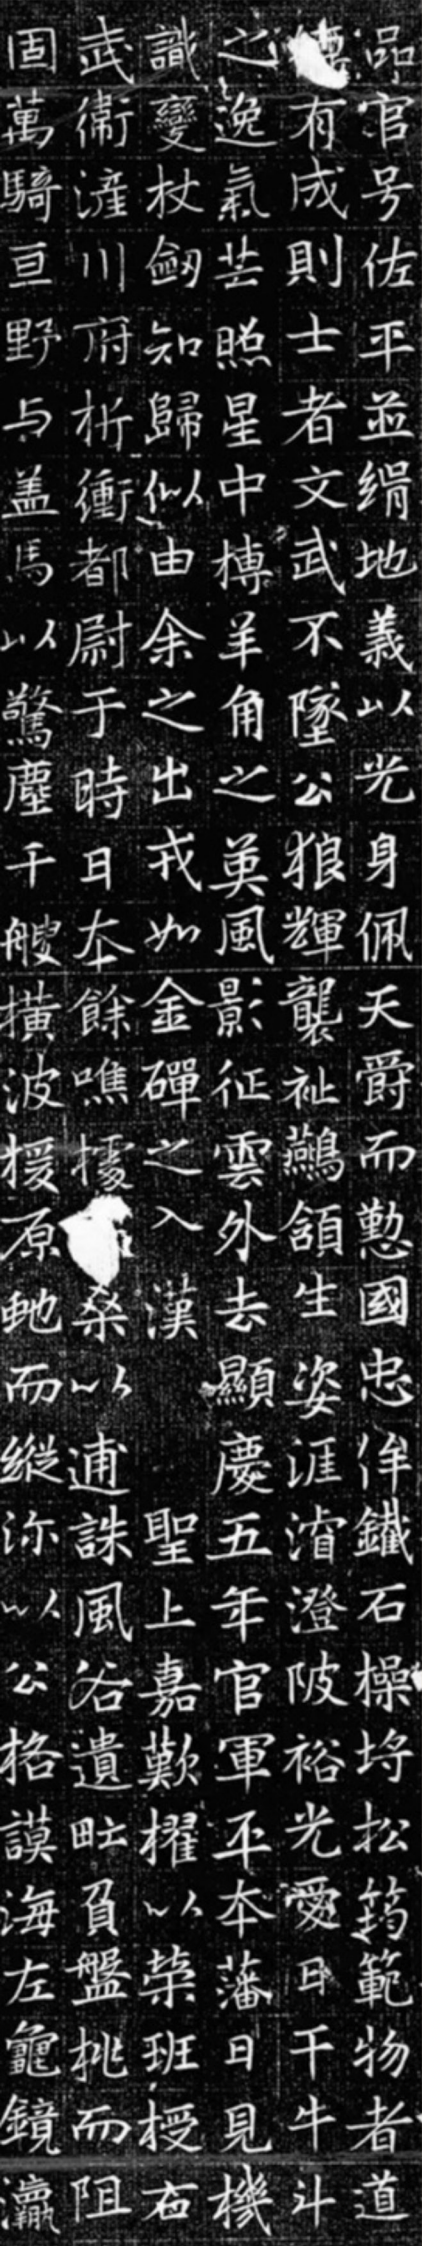 品官号佐平並緝地義以光身佩天爵而懃國忠侔鐵石操埒松筠範物者道
德有成則士者文武不墜公狼輝襲祉鷰頷生姿涯濬澄陂裕光愛日干牛斗
之逸氣芒照星中搏羊角之英風影征雲外去顯慶五年官軍平本藩日見機
識變杖劒知歸似由余之出戎如金磾之入漢 聖上嘉歎擢以榮班授右
武衛滻川府析衝都尉于時日本餘噍據桑以逋誅風谷遺甿負盤桃而阻
固萬騎亘野与盖馬以驚塵千艘横波援原虵而縱沵以公格謨海左龜鏡瀛